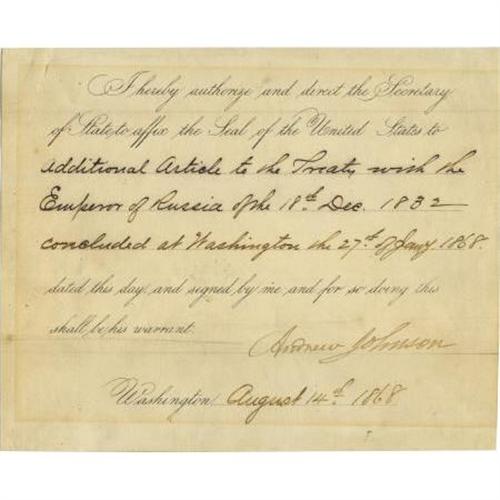 I hereby authorize and direct the Secretary
of State, to affix the Seal of the United States to
Additional Article to the Treaty with the
Emperor of Russia of the 18th Dec. 1832
concluded at Washington the 27th of Jany 1868.
dated this day, and signed by me, and for so doing this
shall be his warrant.
Andrew Johnson
Washington, August 14th 1868